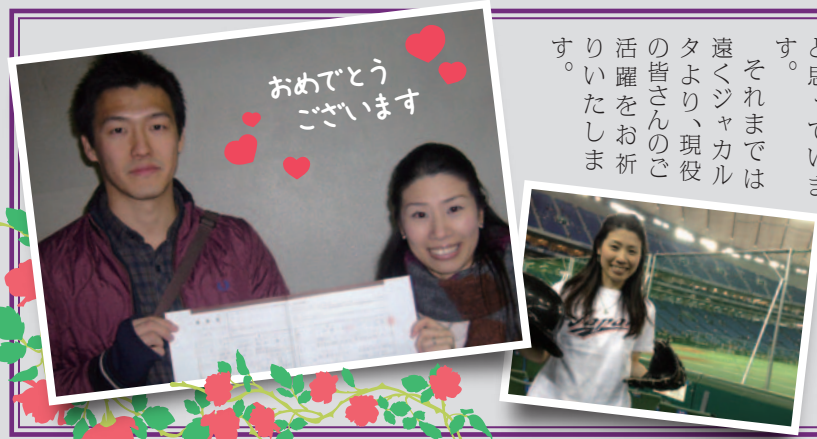 おめでとう
ございます
と思っていま
す。
それまでは
遠くジャカル
タより、現役
の皆さんのご
活躍をお祈
りいたしま
す。